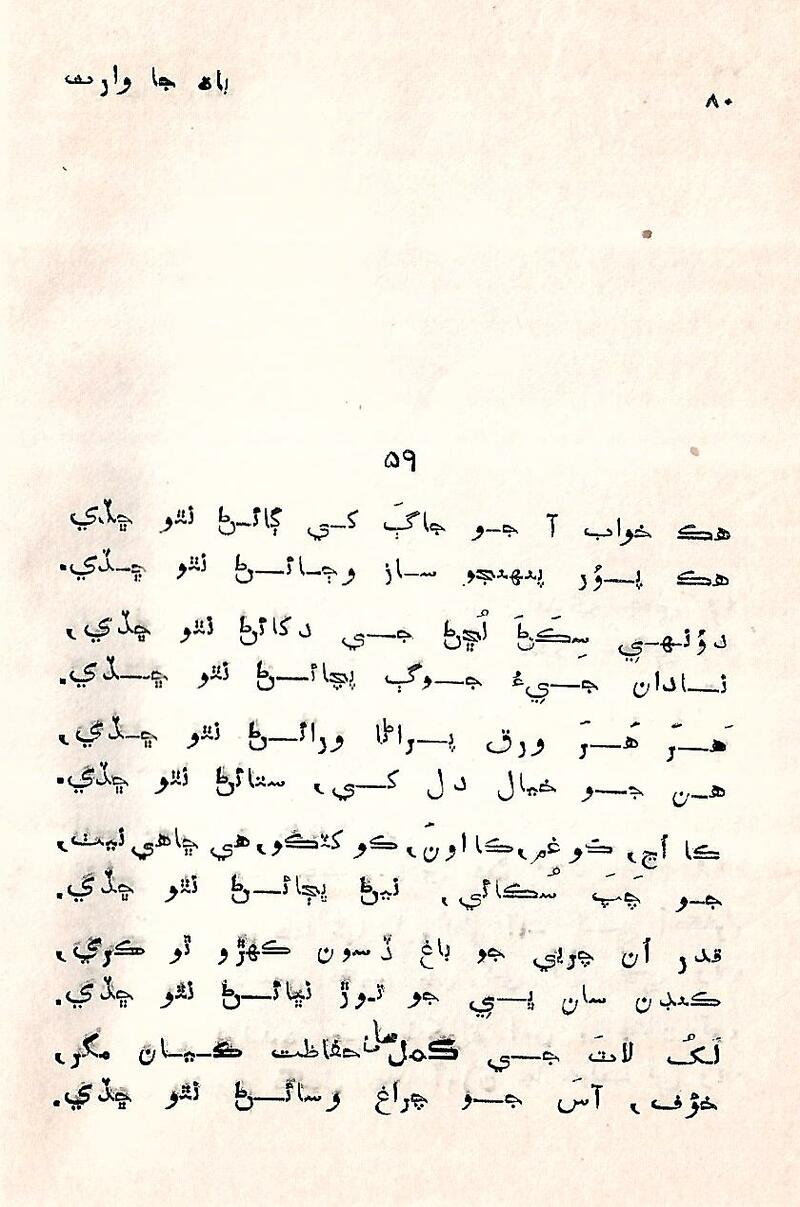 باهه جا وارث
۸۰
۵۹
هڪ خواب آ جو جاڳَ کي ڳائڻ نٿو ڇڏي
هڪ پُور پنهنجو ساز وڄائڻ نٿو ڇڏي.
دؤنهي سِڪَڻَ اُڇڻ جي دکائڻ نٿو ڇڏي،
نادان جيءُ جوڳ پچائڻ نٿو ڇڏي.
هَرَ هَرَ ورق پراڻا ورائڻ نٿو ڇڏي،
هن جو خيال دل کي، ستائڻ نٿو ڇڏي.
ڪا اُڃ، ڪو غم، ڪا اونَ، ڪو کٽڪو، هي چاهي نيٺ،
جو چَپَ سُڪائي، نيڻ ڀڄائڻ نٿو ڇڏي.
قدر اُن چريي جو باغ ڏسون ڪهڙو ٿو ڪري،
ڪنڊن سان ڀي جو توڙ نڀائڻ نٿو ڇڏي.
لَکُ لاٽَ جي ڪمل حفاظت ڪيان مگر،
خوف، آسَ جو چراغ وسائڻ نٿو ڇڏي.